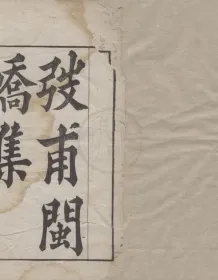 弢甫閩
嶠集